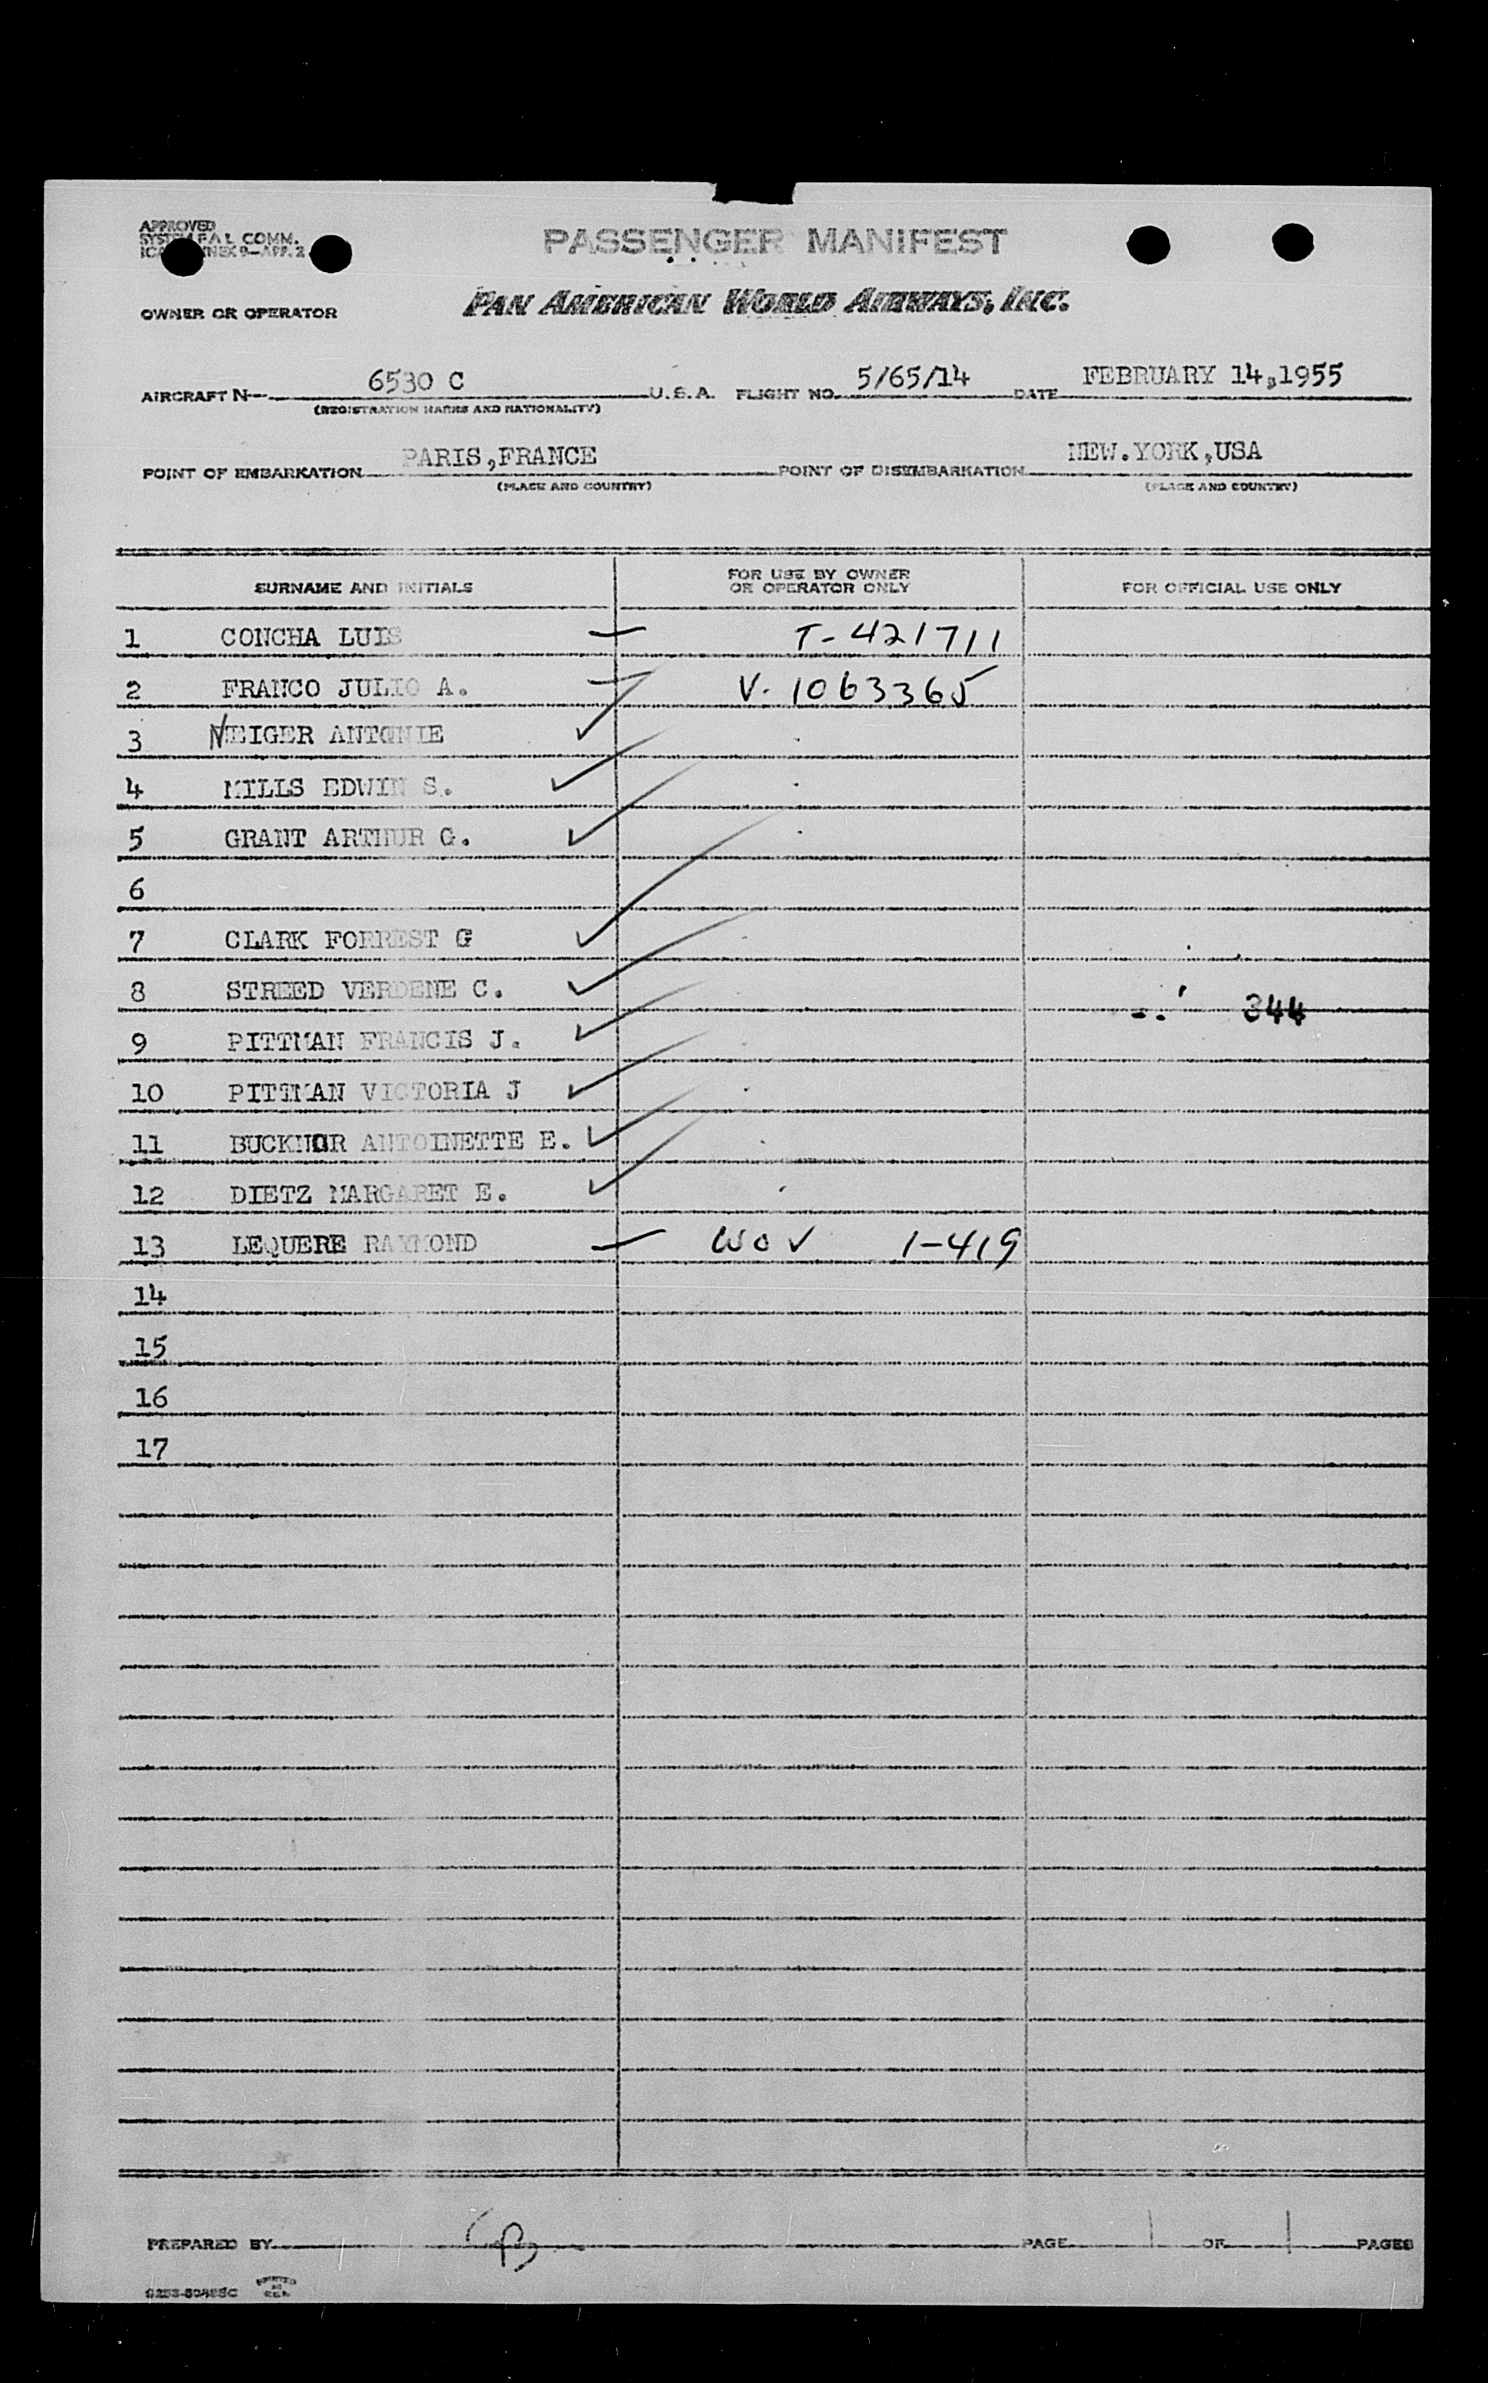 APPROVED
SYSTEM FAL COMM.
ANNEX 9—APP. 2
PASSENGER MANIFEST
OWNER OR OPERATOR PAN AMERICAN WORLD AIRWAYS, INC.
AIRCRAFT N— 6530 C U.S.A. FLIGHT NO. 5/65/14 DATE FEBRUARY 14,1955
(REGISTRATION MARKS AND NATIONALITY)
POINT OF EMBARKATION PARIS,FRANCE POINT OF DISEMBARKATION NEW.YORK,USA
(PLACE AND COUNTRY) (PLACE AND COUNTRY)
SURNAME AND INITIALS FOR USE BY OWNER OR OPERATOR ONLY FOR OFFICIAL USE ONLY
1 CONCHA LUIS — T-421711
2 FRANCO JULIO A. — V-1063365
3 NEIGER ANTONIE ✓
4 MILLS EDWIN S. ✓
5 GRANT ARTHUR G. ✓
6
7 CLARK FORREST G ✓
8 STREED VERDENE C. ✓ 344
9 PITTMAN FRANCIS J. ✓
10 PITTMAN VICTORIA J ✓
11 BUCKNOR ANTOINETTE E. ✓
12 DIETZ MARGARET E. ✓
13 LEQUERE RAYMOND — WOV 1-419
14
15
16
17
PREPARED BY PAGE 1 OF 1 PAGES